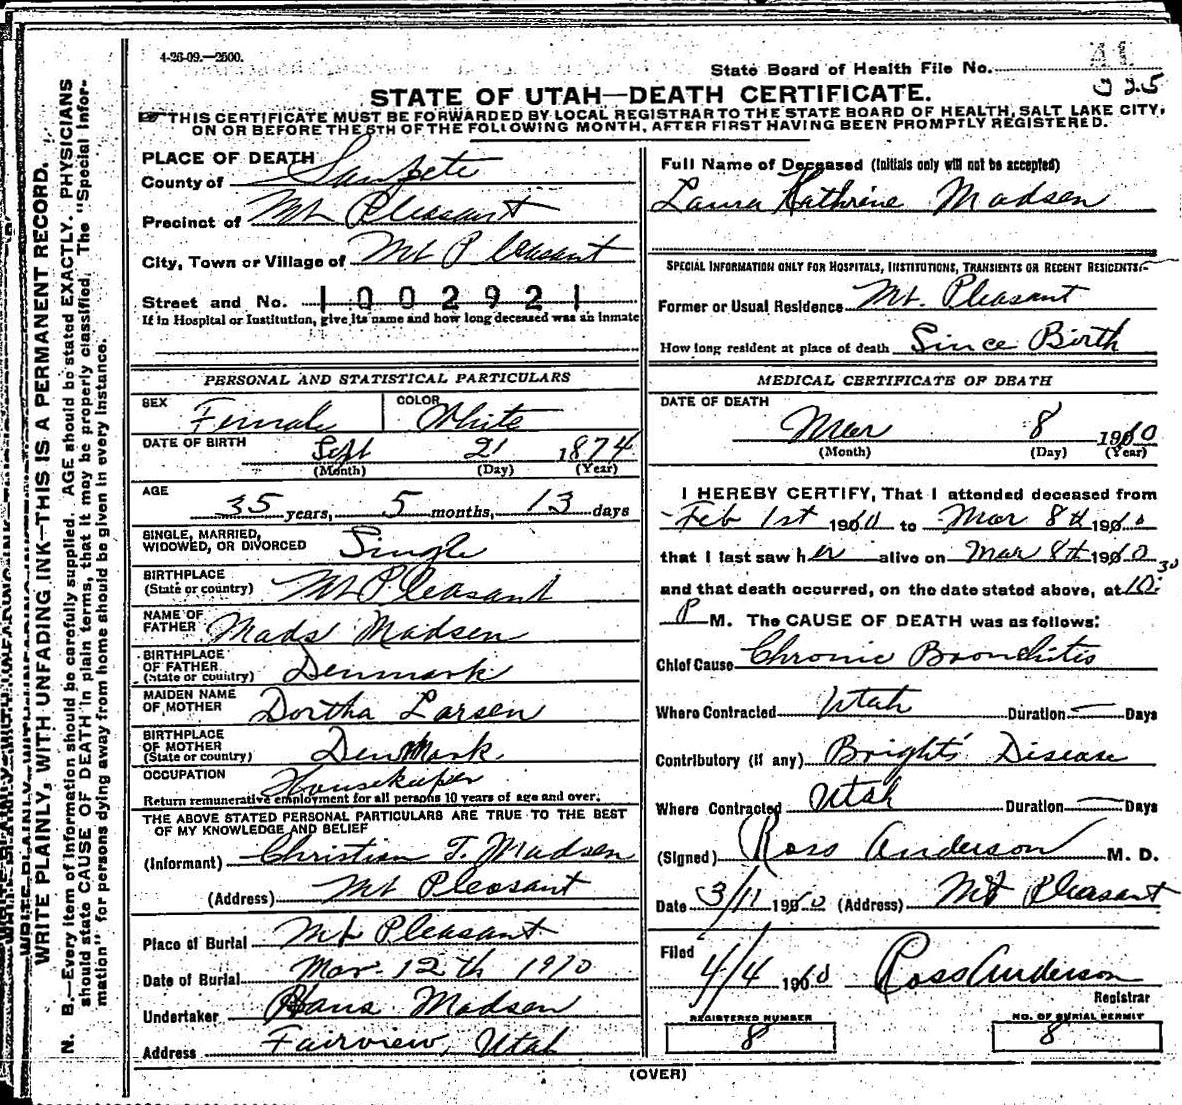 4-26-09.—2500.
State Board of Health File No.
225
STATE OF UTAH—DEATH CERTIFICATE.
THIS CERTIFICATE MUST BE FORWARDED BY LOCAL REGISTRAR TO THE STATE BOARD OF HEALTH, SALT LAKE CITY,
ON OR BEFORE THE 5TH OF THE FOLLOWING MONTH, AFTER FIRST HAVING BEEN PROMPTLY REGISTERED.
WRITE PLAINLY, WITH UNFADING INK—THIS IS A PERMANENT RECORD.
N. B.—Every item of information should be carefully supplied. AGE should be stated EXACTLY. PHYSICIANS
should state CAUSE OF DEATH in plain terms, that it may be properly classified. The "Special Infor-
mation" for persons dying away from home should be given in every instance.
PLACE OF DEATH
County of Sanpete
Precinct of Mt Pleasant
City, Town or Village of Mt Pleasant
Street and No. 1002921
If in Hospital or Institution, give its name and how long deceased was an inmate
PERSONAL AND STATISTICAL PARTICULARS
SEX Female COLOR White
DATE OF BIRTH Sept 21 1874
(Month) (Day) (Year)
AGE 35 years, 5 months, 13 days
SINGLE, MARRIED,
WIDOWED, OR DIVORCED Single
BIRTHPLACE
(State or country) Mt Pleasant
NAME OF
FATHER Mads Madsen
BIRTHPLACE
OF FATHER
(State or country) Denmark
MAIDEN NAME
OF MOTHER Dortha Larsen
BIRTHPLACE
OF MOTHER
(State or country) Denmark
OCCUPATION Housekeeper
Return remunerative employment for all persons 10 years of age and over.
THE ABOVE STATED PERSONAL PARTICULARS ARE TRUE TO THE BEST
OF MY KNOWLEDGE AND BELIEF
(Informant) Christian T. Madsen
(Address) Mt Pleasant
Place of Burial Mt Pleasant
Date of Burial Mar. 12th 1910
Undertaker Hans Madsen
Address Fairview, Utah
Full Name of Deceased (Initials only will not be accepted)
Laura Kathrine Madsen
SPECIAL INFORMATION ONLY FOR HOSPITALS, INSTITUTIONS, TRANSIENTS OR RECENT RESIDENTS.
Former or Usual Residence Mt. Pleasant
How long resident at place of death Since Birth
MEDICAL CERTIFICATE OF DEATH
DATE OF DEATH
Mar 8 1910
(Month) (Day) (Year)
I HEREBY CERTIFY, That I attended deceased from
Feb 1st 1910 to Mar 8th 1910
that I last saw her alive on Mar 8th 1910
and that death occurred, on the date stated above, at 10.30
P M. The CAUSE OF DEATH was as follows:
Chief Cause Chronic Bronchitis
Where Contracted Utah Duration — Days
Contributory (if any) Bright's Disease
Where Contracted Utah Duration — Days
(Signed) Ross Anderson M. D.
Date 3/11 1910 (Address) Mt Pleasant
Filed
4/4 1910 Ross Anderson
Registrar
REGISTERED NUMBER
8
NO. OF BURIAL PERMIT
8
(OVER)